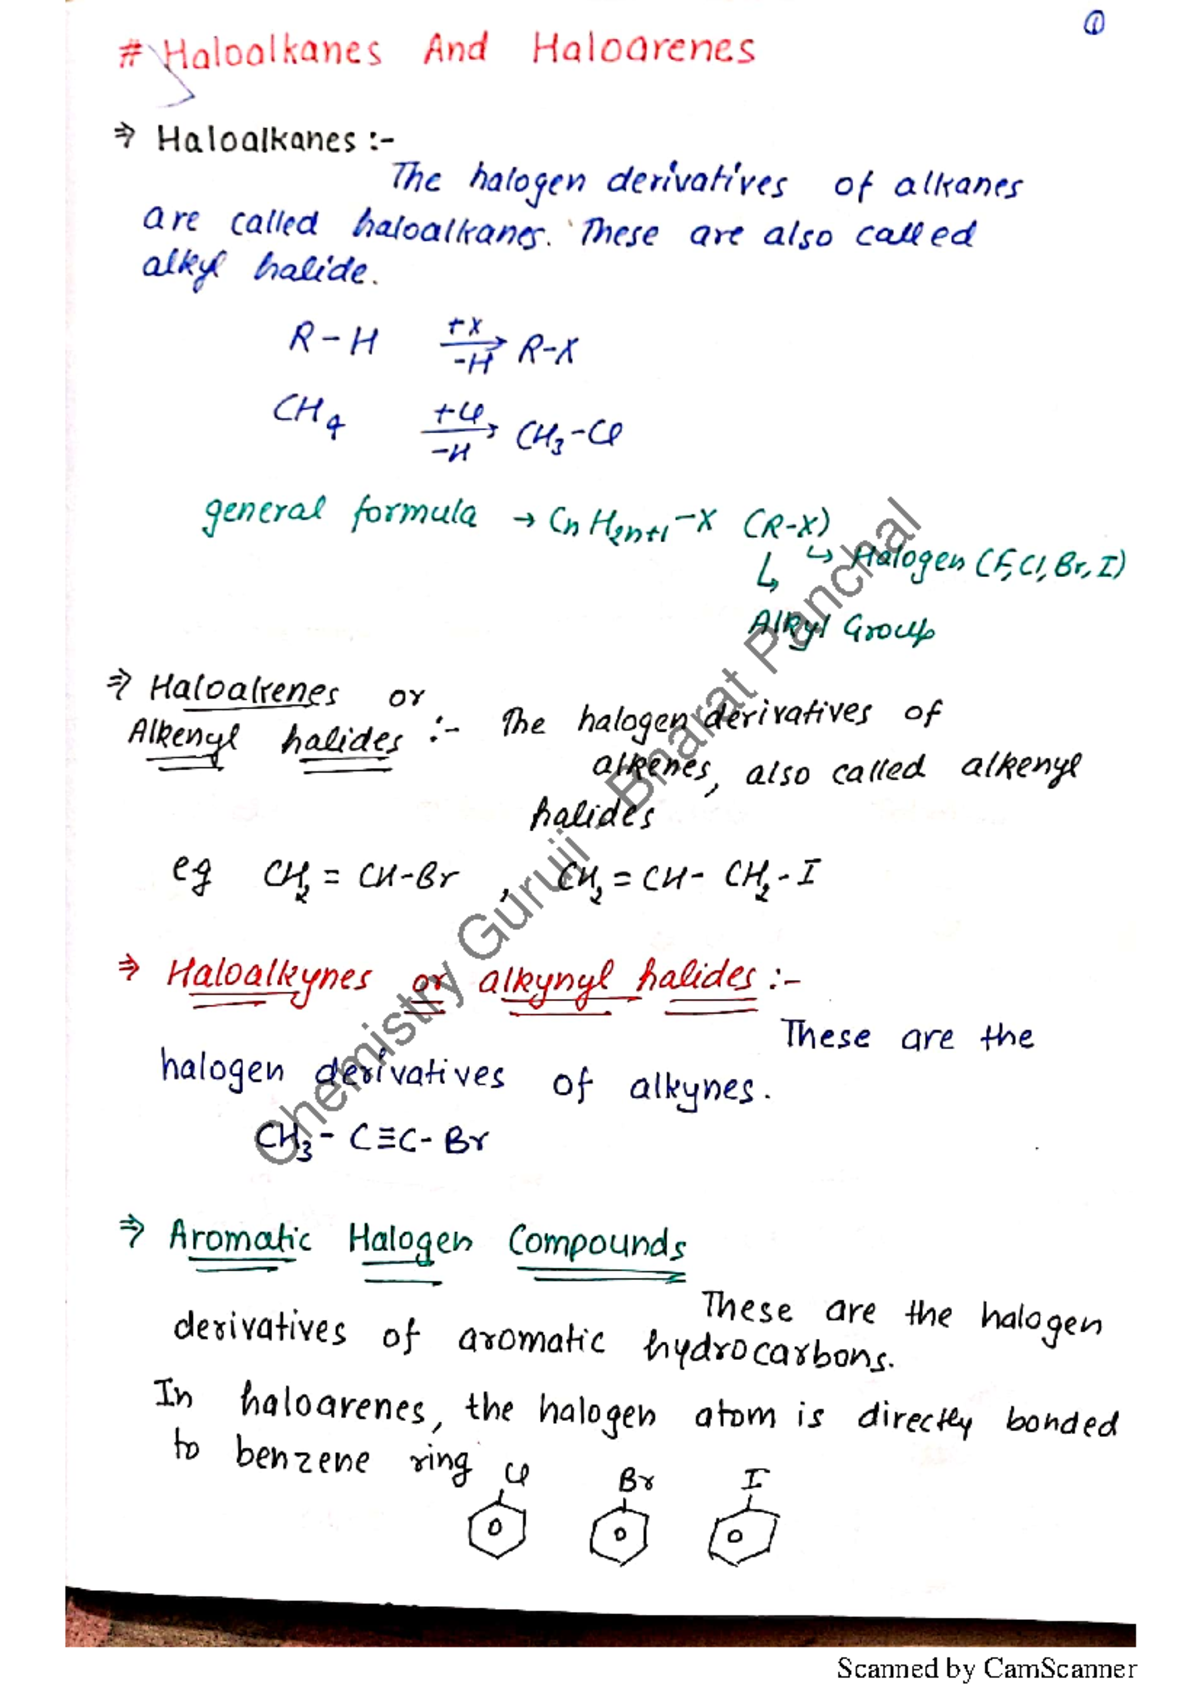 ①
# Haloalkanes And Haloarenes
⇒ Haloalkanes :-
The halogen derivatives of alkanes
are called haloalkanes. These are also called
alkyl halide.
R-H +X/-H → R-X
CH4 +Cl/-H → CH3-Cl
general formula → CnH2n+1-X (R-X)
↳ Halogen (F, Cl, Br, I)
↳ Alkyl Group
⇒ Haloalkenes or
Alkenyl halides :- The halogen derivatives of
alkenes, also called alkenyl
halides
eg CH2 = CH-Br , CH2 = CH- CH2-I
⇒ Haloalkynes or alkynyl halides :-
These are the
halogen derivatives of alkynes.
CH3- C≡C- Br
⇒ Aromatic Halogen Compounds
These are the halogen
derivatives of aromatic hydrocarbons.
In haloarenes, the halogen atom is directly bonded
to benzene ring
Cl Br I
Chemistry Guruji - Bharat Panchal
Scanned by CamScanner